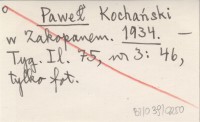 Paweł Kochański
w Zakopanem. 1934. —
Tyg. Il. 75, nr 3: 46,
tylko fot.